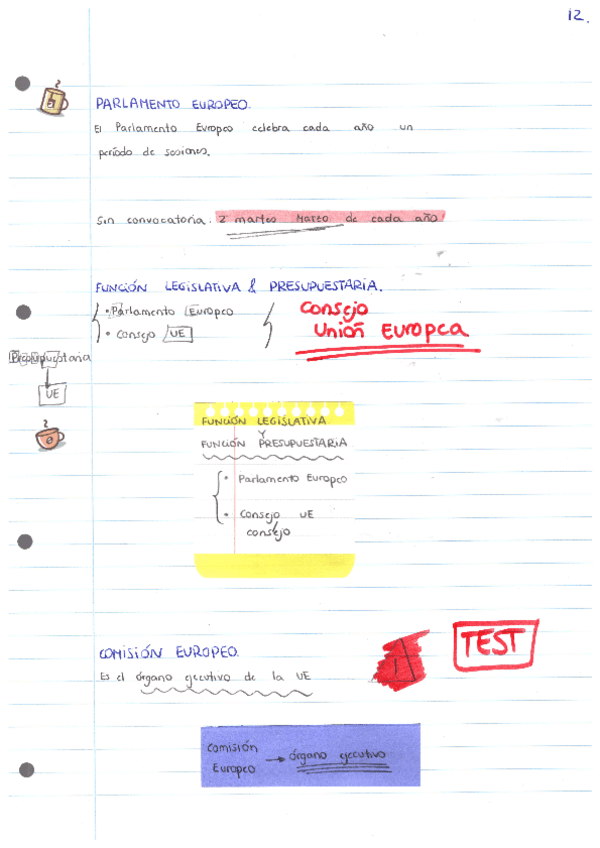 12.
PARLAMENTO EUROPEO.
El Parlamento Europeo celebra cada año un
período de sesiones.
Sin convocatoria. 2º martes Marzo de cada año
FUNCIÓN LEGISLATIVA & PRESUPUESTARIA.
• Parlamento Europeo
• Consejo UE
Consejo
Unión Europea
Presupuestaria
UE
FUNCIÓN LEGISLATIVA
Y
FUNCIÓN PRESUPUESTARIA
• Parlamento Europeo
• Consejo UE
consejo
COMISIÓN EUROPEO.
Es el órgano ejecutivo de la UE
TEST
Comisión
Europeo → órgano ejecutivo